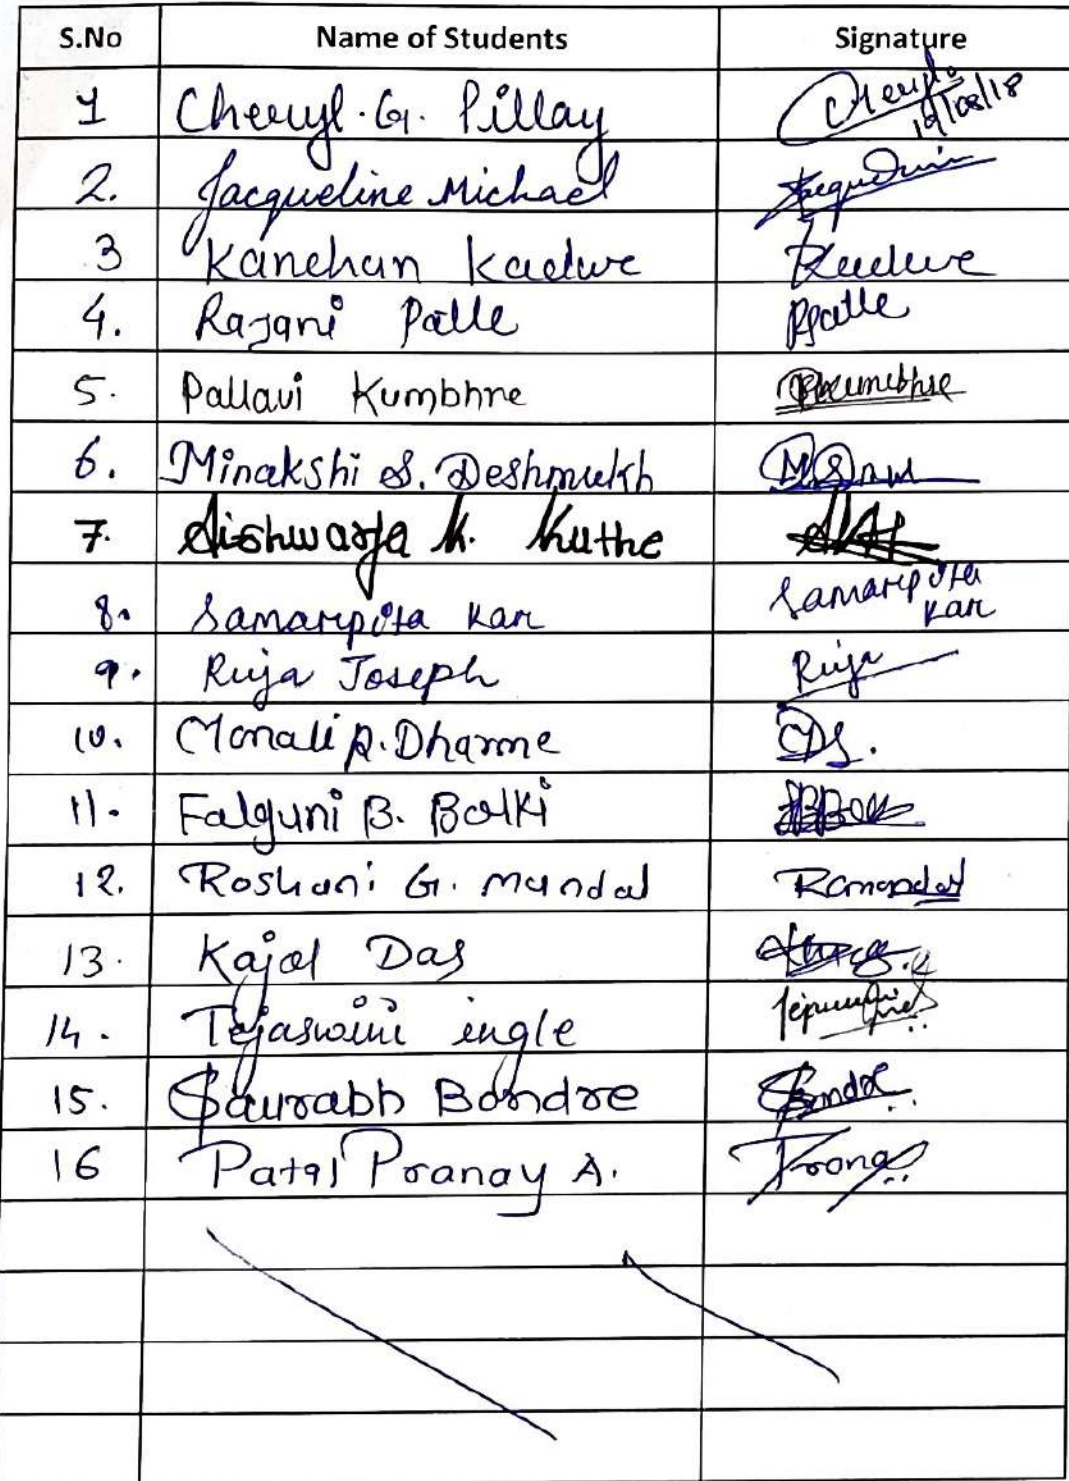 S.No Name of Students Signature
1 Cheryl. G. Pillay Cheryl. 19/08/18
2. Jacqueline Michael Jacqueline
3 Kanchan Kadwe Kadwe
4. Rajani Palle RPalle
5. Pallavi Kumbhre PKumbhre
6. Minakshi S. Deshmukh
7. Aishwarya K. Kuthe
8. Samarpita Kar Samarpita
Kar
9. Rija Joseph Rija
10. Monali R. Dharme
11. Falguni B. Balki
12. Roshani G. Mandal RMandal
13. Kajal Das
14. Tejaswini ingle
15. Saurabh Bondre SBondre
16 Patel Pranay A. Pranay